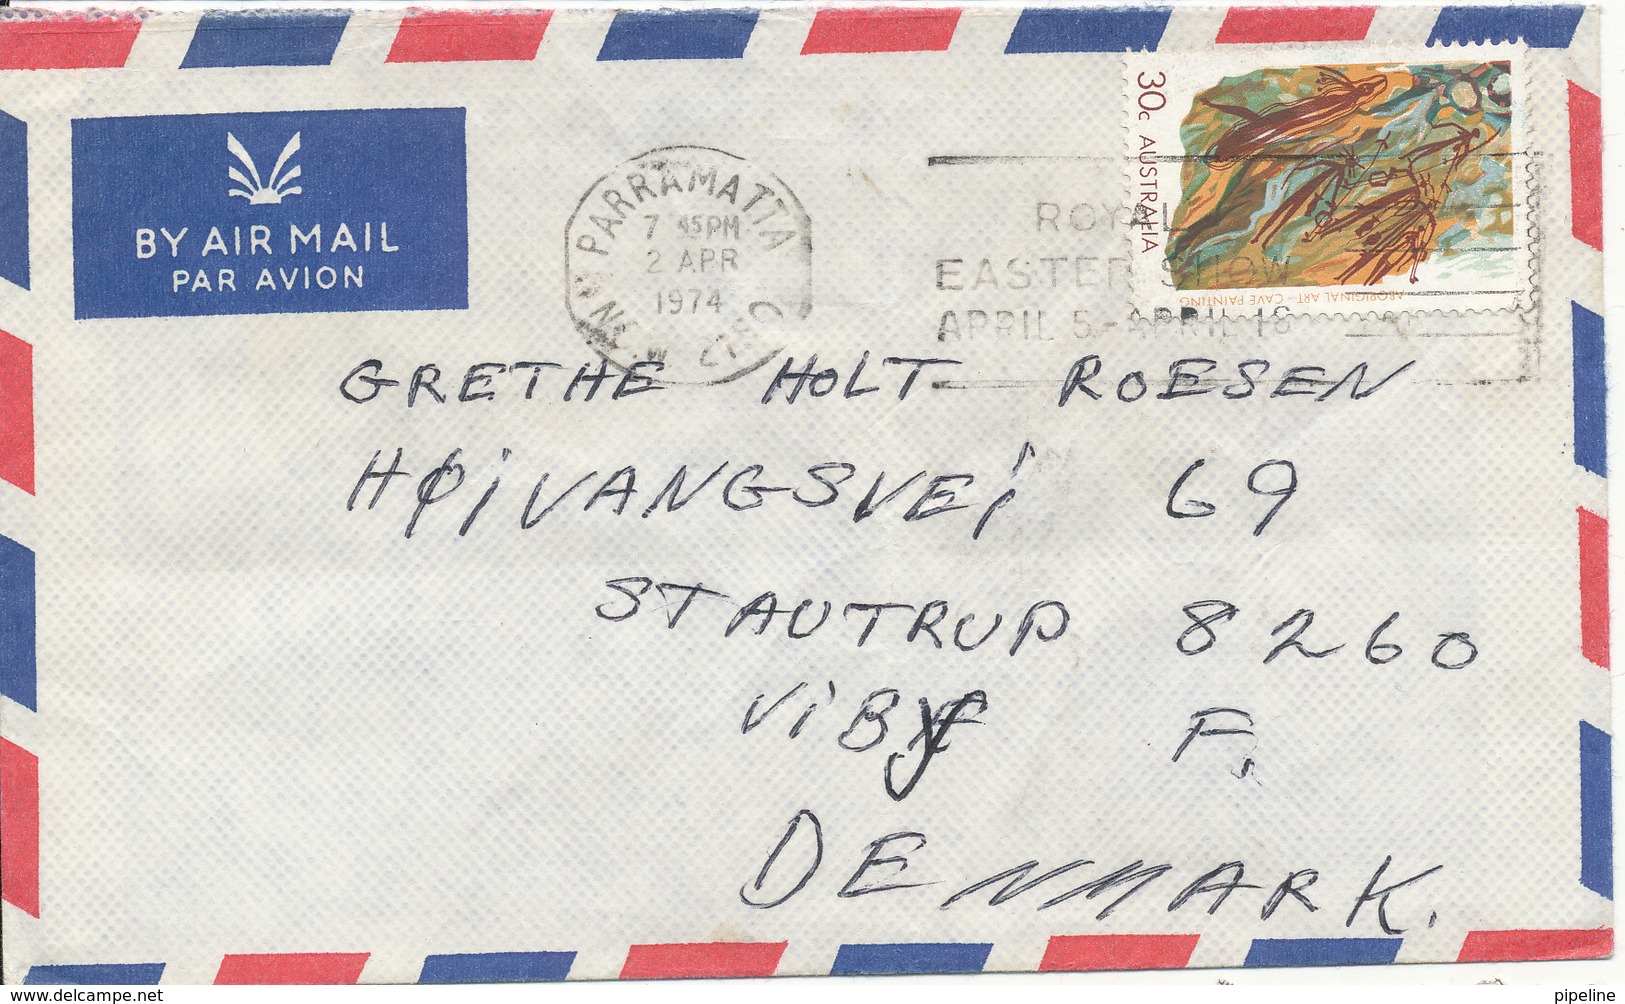 BY AIR MAIL
PAR AVION
PARRAMATTA
7 45PM
2 APR
1974
ROYAL
EASTER SHOW
APRIL 5-APRIL 16
30c AUSTRALIA
ABORIGINAL ART - CAVE PAINTING
GRETHE HOLT ROESEN
HØIVANGSVEI 69
STAUTRUP 8260
VIBY F.
DENMARK.
pipeline